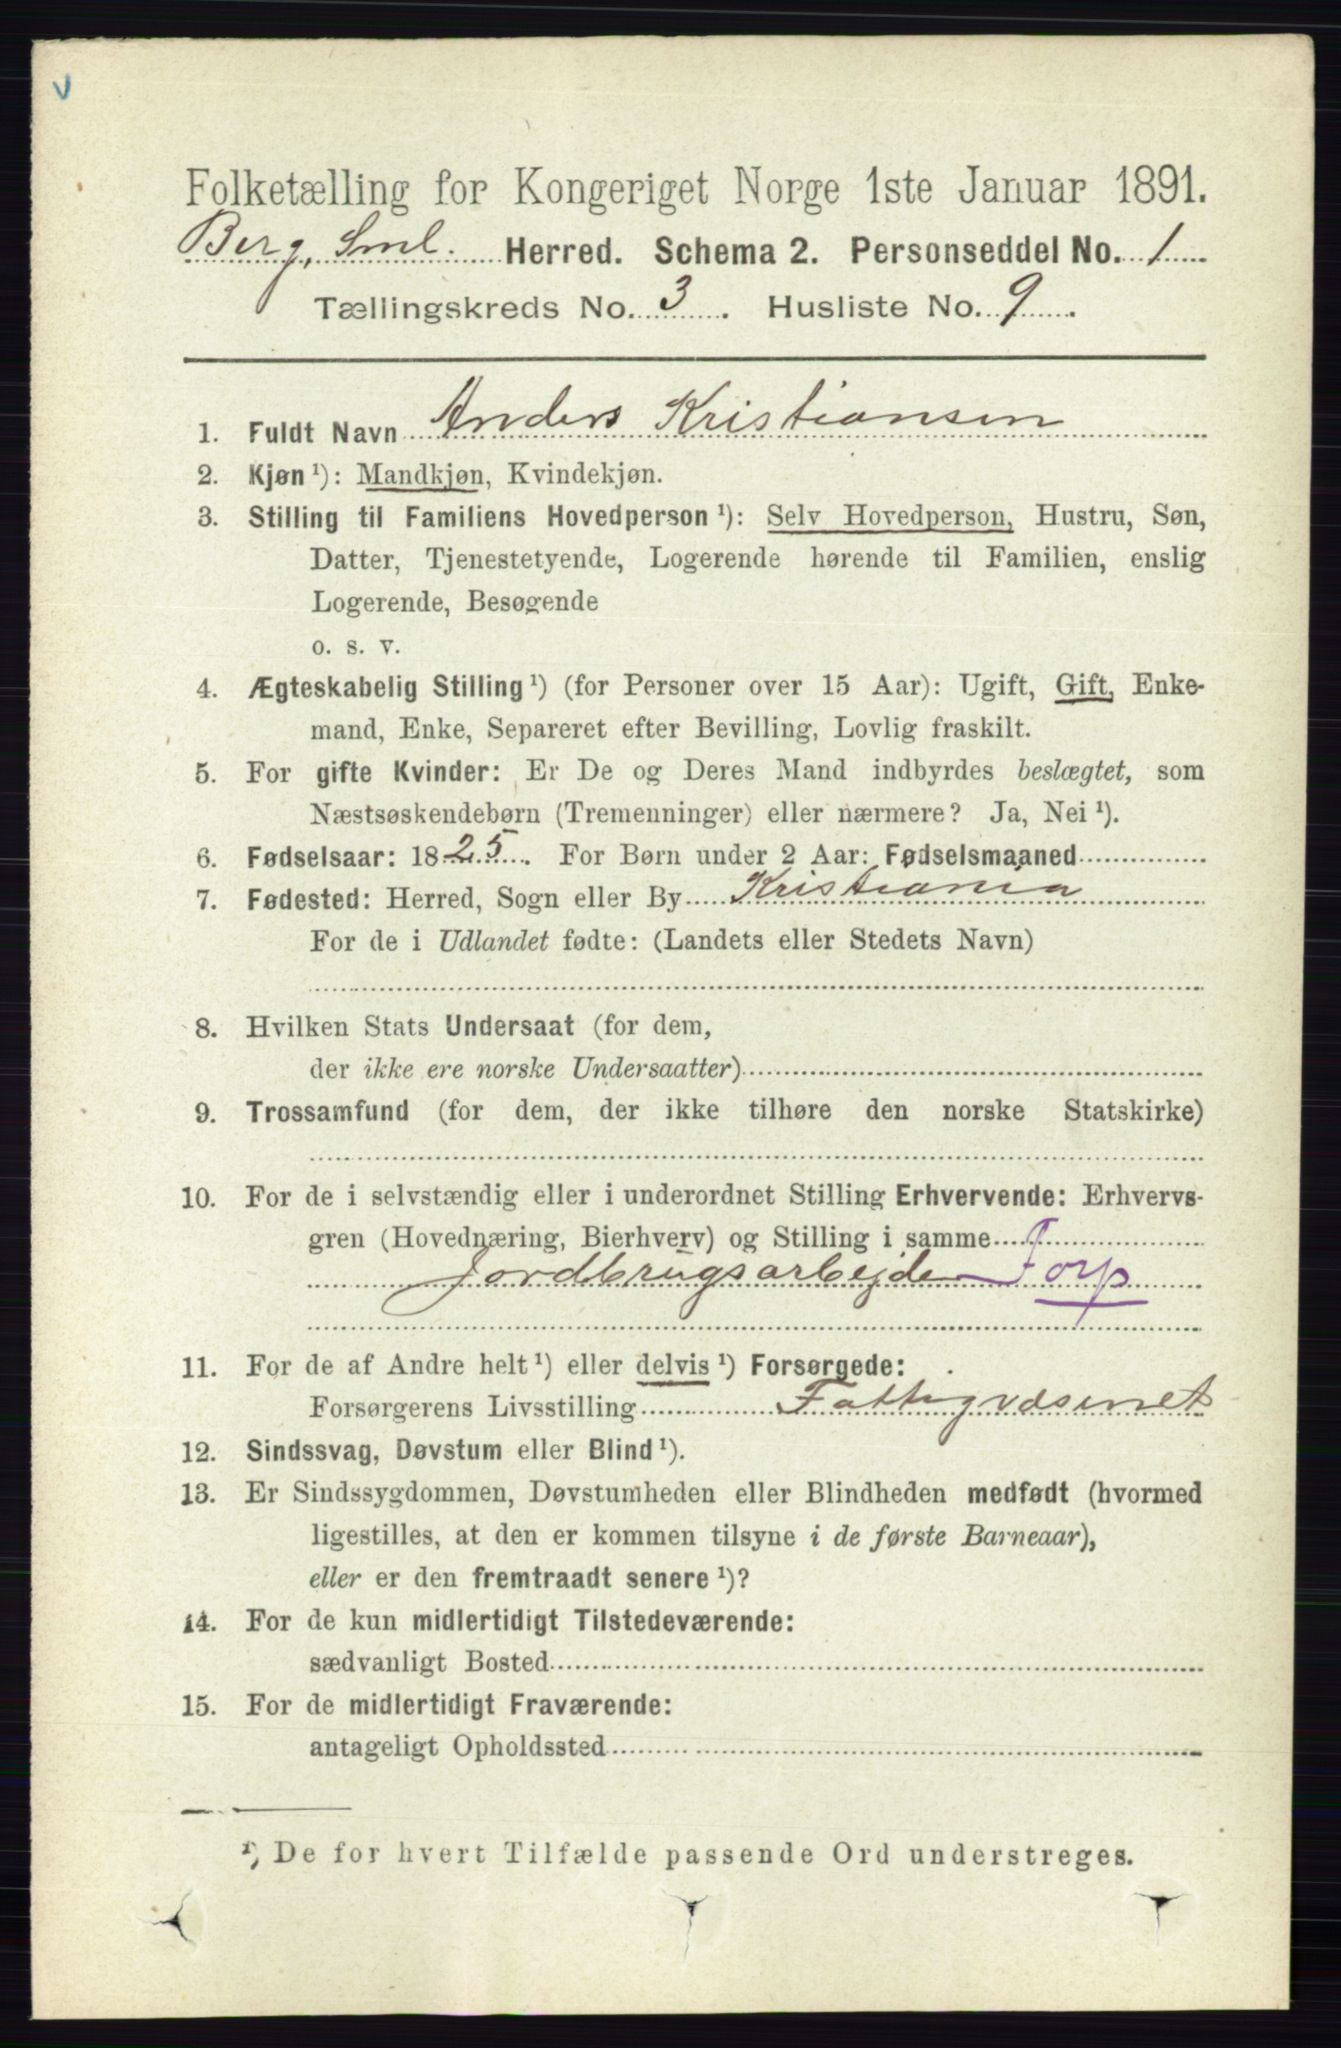 V
Folketælling for Kongeriget Norge 1ste Januar 1891.
Berg, Sml. Herred. Schema 2. Personseddel No. 1
Tællingskreds No. 3. Husliste No. 9.
1. Fuldt Navn Anders Kristiansen
2. Kjøn ¹): Mandkjøn, Kvindekjøn.
3. Stilling til Familiens Hovedperson ¹): Selv Hovedperson, Hustru, Søn,
Datter, Tjenestetyende, Logerende hørende til Familien, enslig
Logerende, Besøgende
o. s. v.
4. Ægteskabelig Stilling ¹) (for Personer over 15 Aar): Ugift, Gift, Enke-
mand, Enke, Separeret efter Bevilling, Lovlig fraskilt.
5. For gifte Kvinder: Er De og Deres Mand indbyrdes beslægtet, som
Næstsøskendebørn (Tremenninger) eller nærmere? Ja, Nei ¹).
6. Fødselsaar: 1825. For Børn under 2 Aar: Fødselsmaaned
7. Fødested: Herred, Sogn eller By Kristiania
For de i Udlandet fødte: (Landets eller Stedets Navn)
8. Hvilken Stats Undersaat (for dem,
der ikke ere norske Undersaatter)
9. Trossamfund (for dem, der ikke tilhøre den norske Statskirke)
10. For de i selvstændig eller i underordnet Stilling Erhvervende: Erhvervs-
gren (Hovednæring, Bierhverv) og Stilling i samme
Jordbrugsarbejder Torp
11. For de af Andre helt ¹) eller delvis ¹) Forsørgede:
Forsørgerens Livsstilling Fattigvæsenet
12. Sindssvag, Døvstum eller Blind ¹).
13. Er Sindssygdommen, Døvstumheden eller Blindheden medfødt (hvormed
ligestilles, at den er kommen tilsyne i de første Barneaar),
eller er den fremtraadt senere ¹)?
14. For de kun midlertidigt Tilstedeværende:
sædvanligt Bosted
15. For de midlertidigt Fraværende:
antageligt Opholdssted
¹) De for hvert Tilfælde passende Ord understreges.